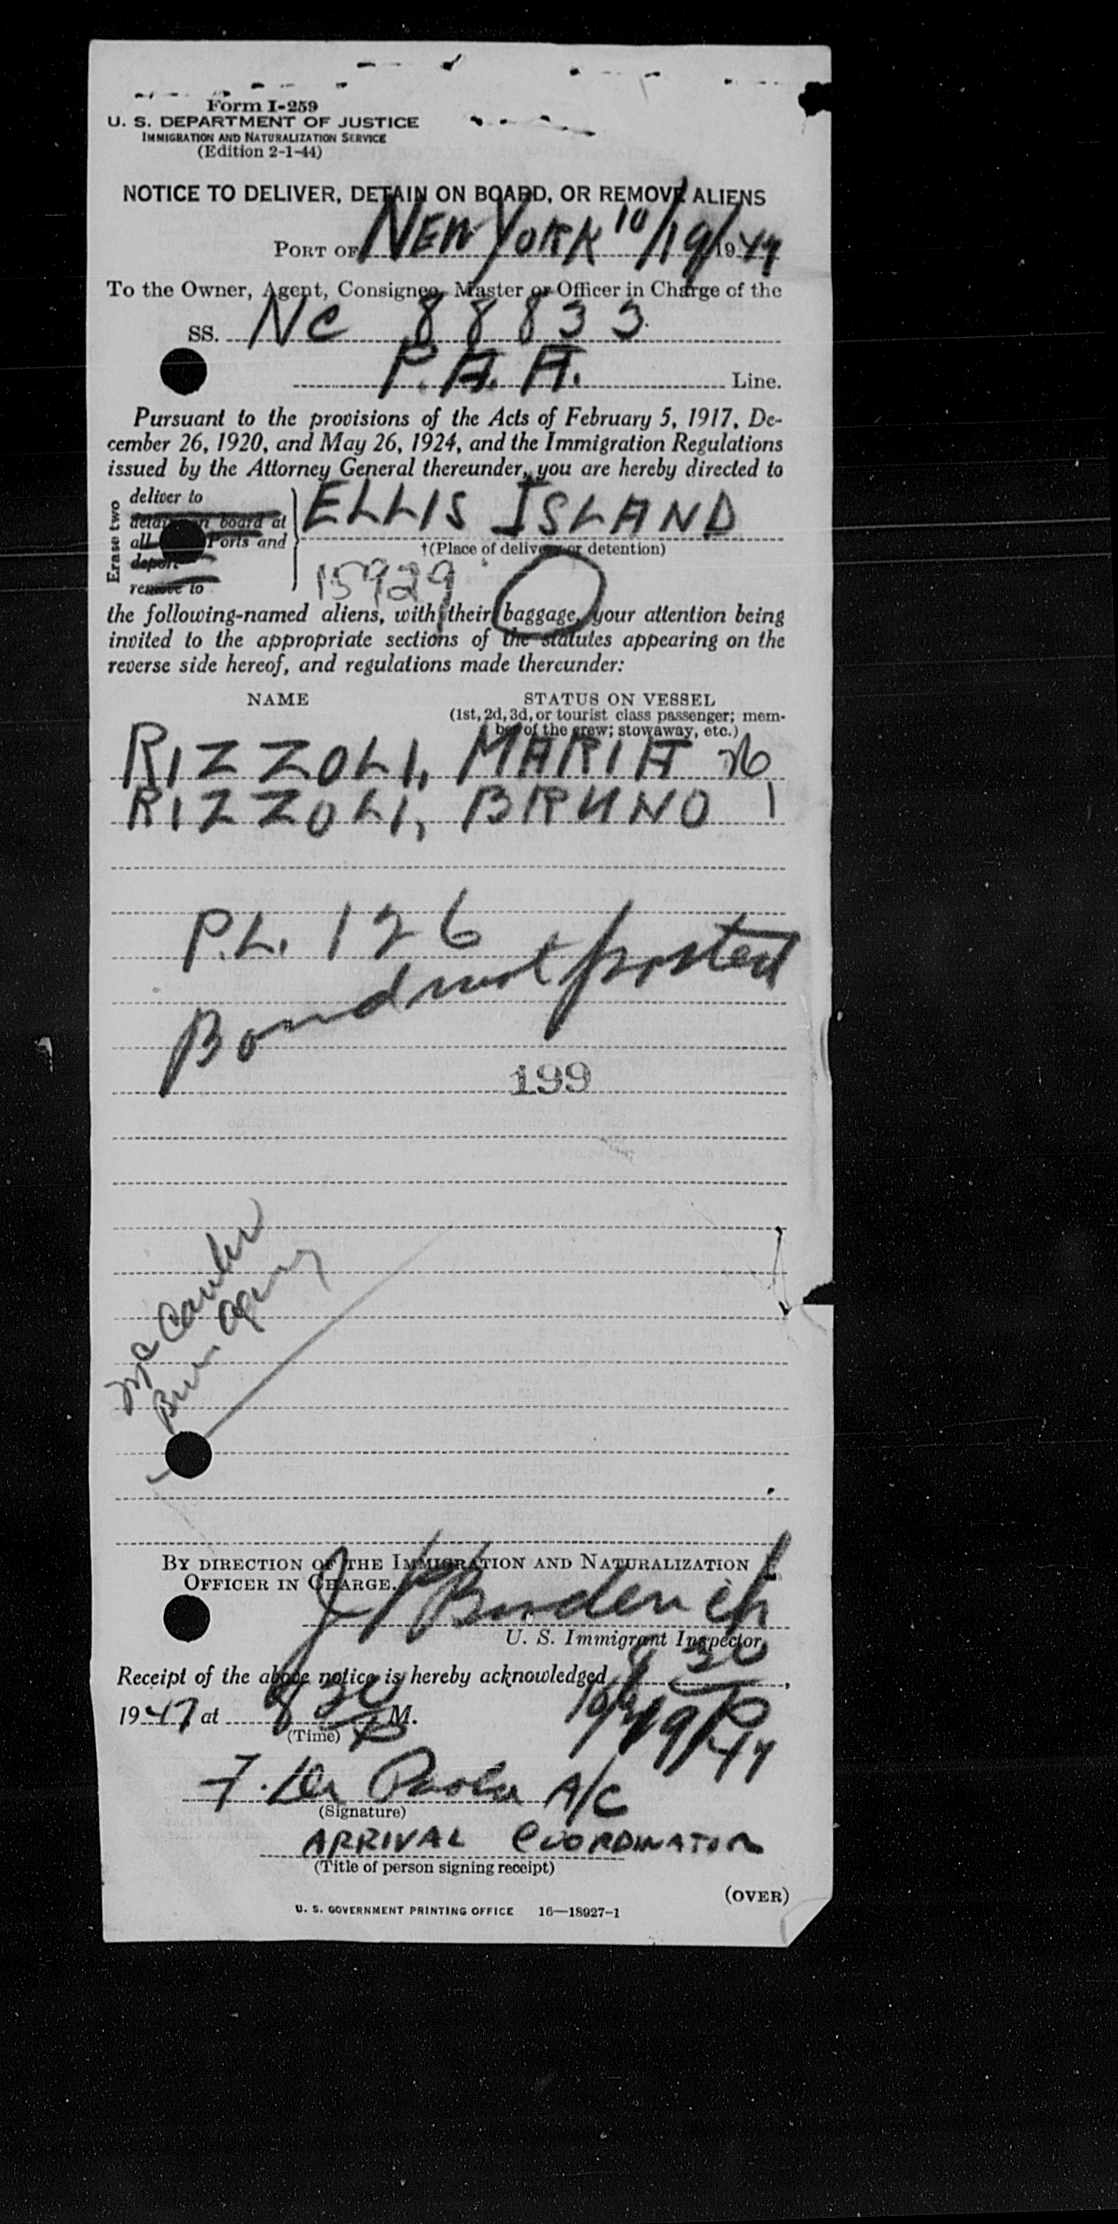 Form I-259
U. S. DEPARTMENT OF JUSTICE
IMMIGRATION AND NATURALIZATION SERVICE
(Edition 2-1-44)
NOTICE TO DELIVER, DETAIN ON BOARD, OR REMOVE ALIENS
PORT OF NEW YORK 10/19/1947
To the Owner, Agent, Consignee, Master or Officer in Charge of the
SS. NC 88833
P.A.A. Line.
Pursuant to the provisions of the Acts of February 5, 1917, De-
cember 26, 1920, and May 26, 1924, and the Immigration Regulations
issued by the Attorney General thereunder, you are hereby directed to
Erase two
deliver to
detain on board at
all Ports and
deport
remove to
ELLIS ISLAND
†(Place of delivery or detention)
15929
the following-named aliens, with their baggage, your attention being
invited to the appropriate sections of the statutes appearing on the
reverse side hereof, and regulations made thereunder:
NAME
STATUS ON VESSEL
(1st, 2d, 3d, or tourist class passenger; mem-
ber of the crew; stowaway, etc.)
RIZZOLI, MARIA 26
RIZZOLI, BRUNO 1
P.L. 126
Bond not posted
199
BY DIRECTION OF THE IMMIGRATION AND NATURALIZATION
OFFICER IN CHARGE.
U. S. Immigrant Inspector
Receipt of the above notice is hereby acknowledged 8 30 P
10/19/47,
1947, at 8 30 P M.
(Time)
F. De Paola A/C
(Signature)
ARRIVAL COORDINATOR
(Title of person signing receipt)
(OVER)
U. S. GOVERNMENT PRINTING OFFICE 16—18927-1